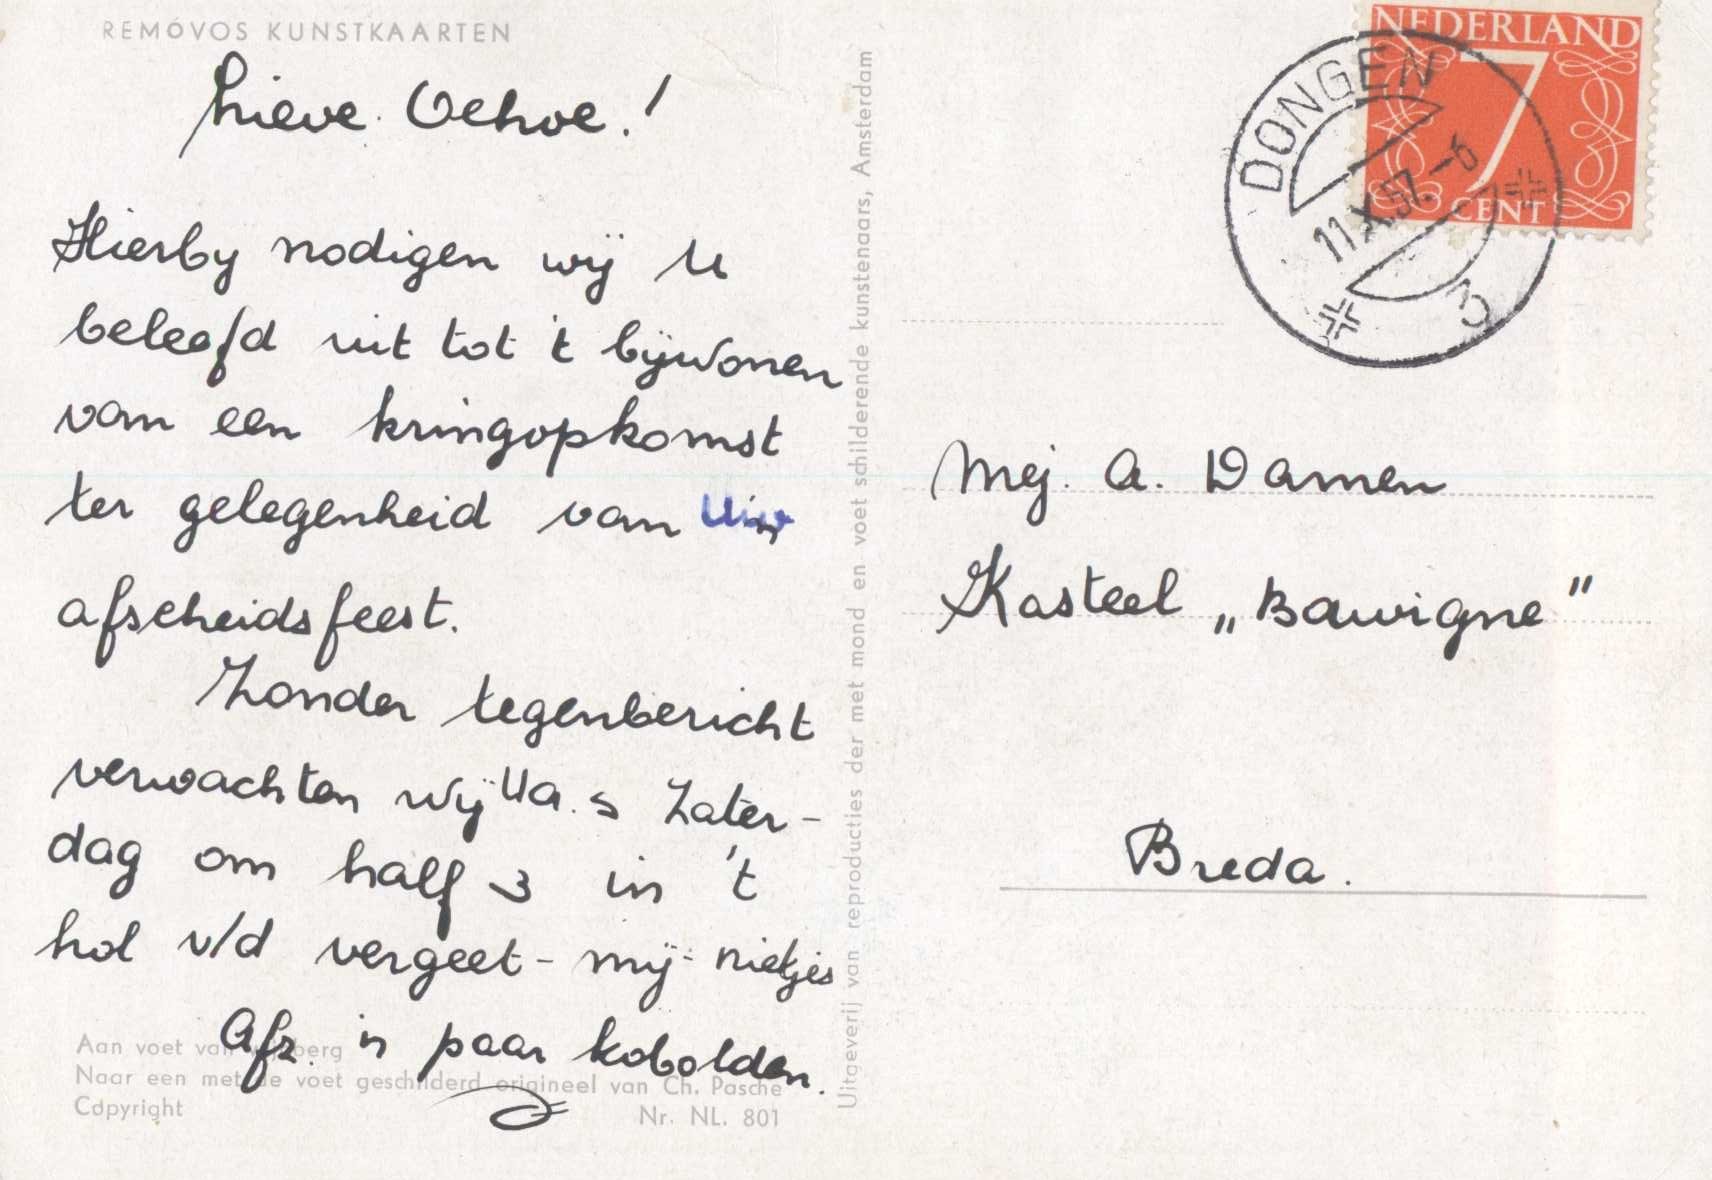 REMÓVOS KUNSTKAARTEN
Lieve Oehoe!
Hierby nodigen wij U
beleefd uit tot 't bijwonen
van een kringopkomst
ter gelegenheid van Uw
afscheidsfeest.
Zonder tegenbericht
verwachten wij U a.s Zater-
dag om half 3 in 't
hol v/d vergeet-mij-nietjes
Afz. 'n paar kobolden.
Aan voet van berg
Naar een met de voet geschilderd origineel van Ch. Pasche
Copyright
Nr. NL. 801
Uitgeverij van reproducties der met mond en voet schilderende kunstenaars, Amsterdam
NEDERLAND
7
CENT
DONGEN
11.X.57.-6
3
Mej. A. Damen
Kasteel „Bouvigne”
Breda.